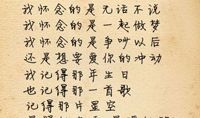 我怀念的是无话不说
我怀念的是一起做梦
我怀念的是争吵以后
还是想要爱你的冲动
我记得那年生日
也记得那一首歌
记得那片星空